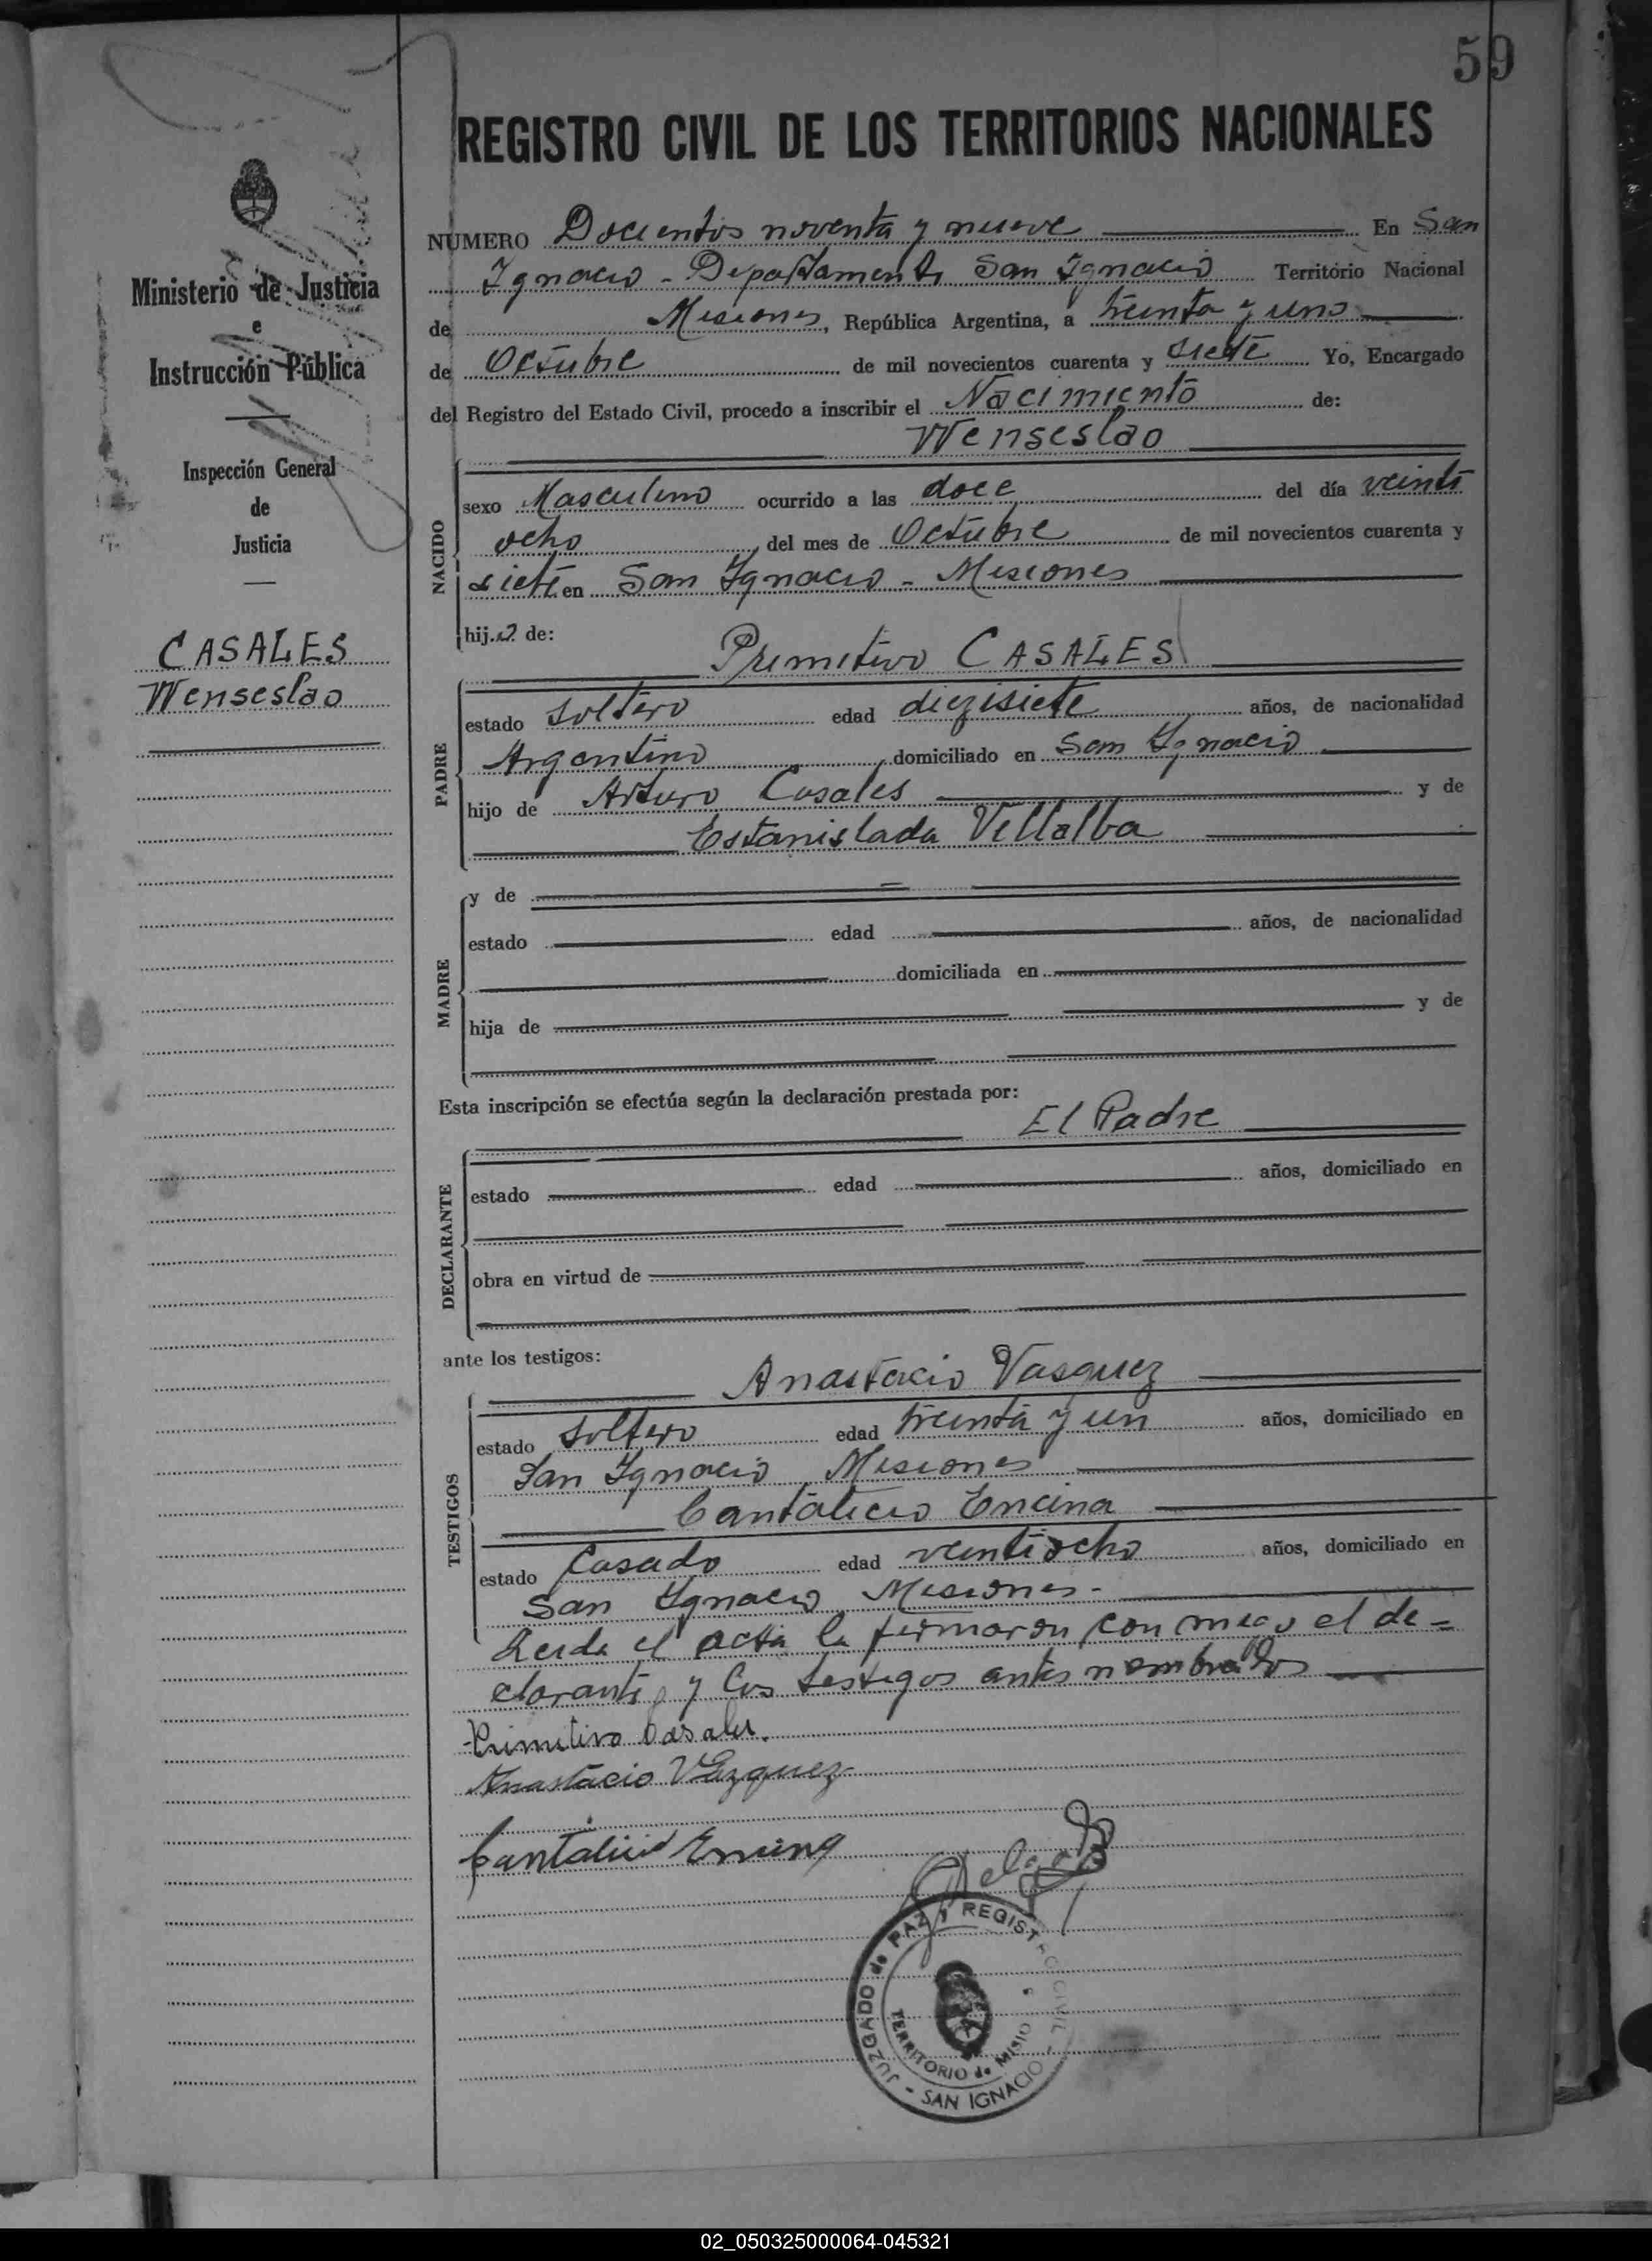 59
REGISTRO CIVIL DE LOS TERRITORIOS NACIONALES
Ministerio de Justicia
e
Instrucción Pública
Inspección General
de
Justicia
CASALES
Wenseslao
NUMERO Docientos noventa y nueve En San
Ignacio - Departamento San Ignacio Territorio Nacional
de Misiones, República Argentina, a treinta y uno
de Octubre de mil novecientos cuarenta y siete Yo, Encargado
del Registro del Estado Civil, procedo a inscribir el Nacimiento de:
Wenseslao
NACIDO
sexo Masculino ocurrido a las doce del día veinti
ocho del mes de Octubre de mil novecientos cuarenta y
siete en San Ignacio - Misiones
hij.o de:
Primitivo CASALES
PADRE
estado soltero edad diezisiete años, de nacionalidad
Argentino domiciliado en San Ignacio
hijo de Arturo Casales y de
Estanislada Villalba
MADRE
y de
estado edad años, de nacionalidad
domiciliada en
hija de y de
Esta inscripción se efectúa según la declaración prestada por:
El Padre
DECLARANTE
estado edad años, domiciliado en
obra en virtud de
ante los testigos:
Anastacio Vasquez
TESTIGOS
estado soltero edad treinta y un años, domiciliado en
San Ignacio Misiones
Cantalicio Encina
estado Casado edad veintiocho años, domiciliado en
San Ignacio Misiones.-
Leida el acta la firmaron con migo el de-
clarante y los testigos antes nombrados
Primitivo Casales.
Anastacio Vazquez
Cantalicio Encina
JUZGADO de PAZ y REGISTRO CIVIL - SAN IGNACIO -
TERRITORIO de MISIO S
02_050325000064-045321